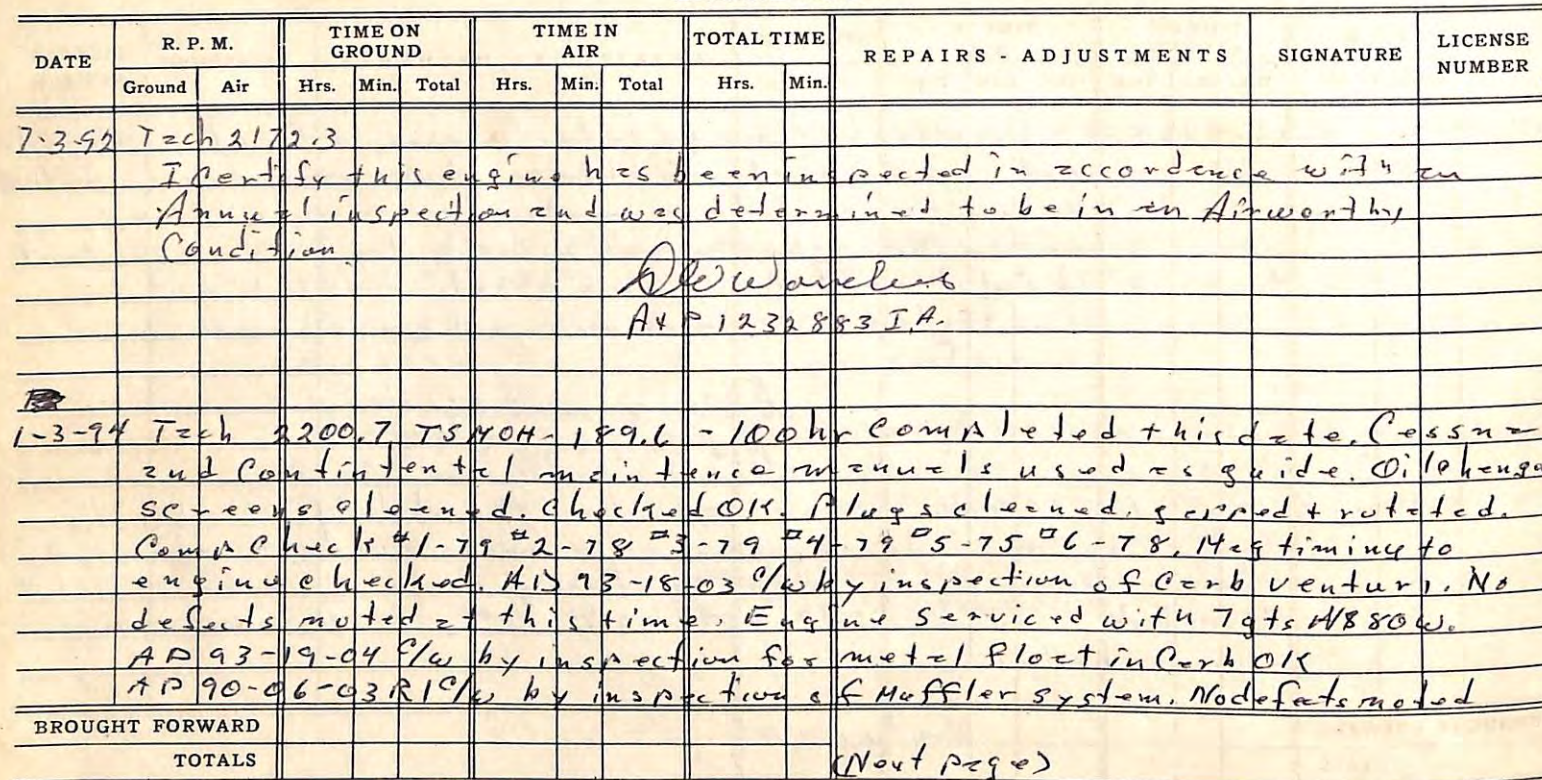 DATE R. P. M. TIME ON GROUND TIME IN AIR TOTAL TIME REPAIRS - ADJUSTMENTS SIGNATURE LICENSE NUMBER
Ground Air Hrs. Min. Total Hrs. Min. Total Hrs. Min.
7-3-92 Tach 2172.3
I Certify this engine has been inspected in accordance with an
Annual inspection and was determined to be in an Airworthy
Condition
A&P 1232883 I.A.
1-3-94 Tach 2200.7 TSMOH-189.6 -100hr Completed this date. Cessna
and Contintental maintence manuals used as guide. Oil change
screens cleaned. Checked OK. Plugs cleaned, gapped + rotated.
Comp Check #1-79 #2-78 #3-79 #4-79 #5-75 #6-78. Mag timing to
engine checked. AD 93-18-03 c/w by inspection of Carb venturi. No
defects noted at this time. Engine Serviced with 7qts 80w.
AD 93-19-04 c/w by inspection for metal float in Carb OK
AD 90-06-03R1 c/w by inspection of Muffler system. No defects noted
BROUGHT FORWARD
TOTALS (Next page)